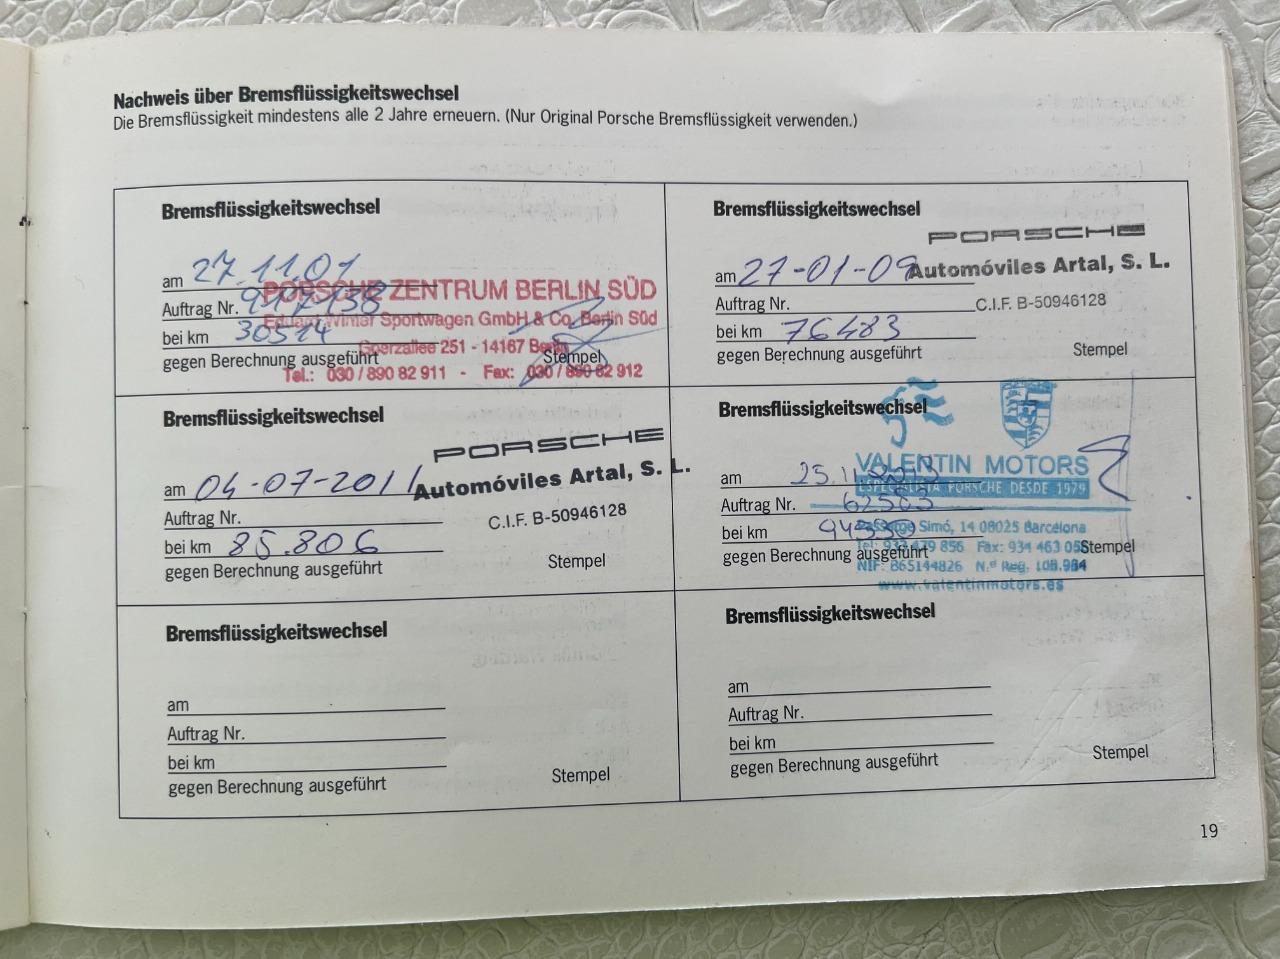 Nachweis über Bremsflüssigkeitswechsel
Die Bremsflüssigkeit mindestens alle 2 Jahre erneuern. (Nur Original Porsche Bremsflüssigkeit verwenden.)
Bremsflüssigkeitswechsel
am 27.11.01
Auftrag Nr.
bei km 30514
gegen Berechnung ausgeführt
Stempel
PORSCHE ZENTRUM BERLIN SÜD
Eduard Winter Sportwagen GmbH & Co. Berlin Süd
Goerzallee 251 - 14167 Berlin
Tel.: 030 / 890 82 911 - Fax: 030 / 890 82 912
Bremsflüssigkeitswechsel
am 27-01-09
Auftrag Nr.
bei km 76483
gegen Berechnung ausgeführt
Stempel
PORSCHE
Automóviles Artal, S. L.
C.I.F. B-50946128
Bremsflüssigkeitswechsel
am 04-07-2011
Auftrag Nr.
bei km 85.806
gegen Berechnung ausgeführt
Stempel
PORSCHE
Automóviles Artal, S. L.
C.I.F. B-50946128
Bremsflüssigkeitswechsel
am 25.11
Auftrag Nr.
bei km
gegen Berechnung ausgeführt
Stempel
VALENTIN MOTORS
ESPECIALISTA PORSCHE DESDE 1979
Simó, 14 08025 Barcelona
Fax: 934 463 055
NIF: B65144826 N.º Reg. 108.984
www.valentinmotors.es
Bremsflüssigkeitswechsel
am
Auftrag Nr.
bei km
gegen Berechnung ausgeführt
Stempel
Bremsflüssigkeitswechsel
am
Auftrag Nr.
bei km
gegen Berechnung ausgeführt
Stempel
19